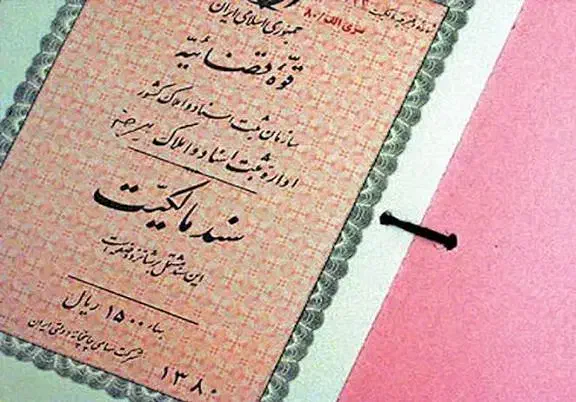 سری الف/۸۰
جمهوری اسلامی ایران
قوّهٔ قضائیّه
سازمان ثبت اسناد و املاک کشور
ادارهٔ ثبت اسناد و املاک
سند مالکیّت
این سند مشتمل بر شانزده صفحه است
بهاء ۱۵۰۰ ریال
شرکت سهامی چاپخانه دولتی ایران
۱۳۸۰